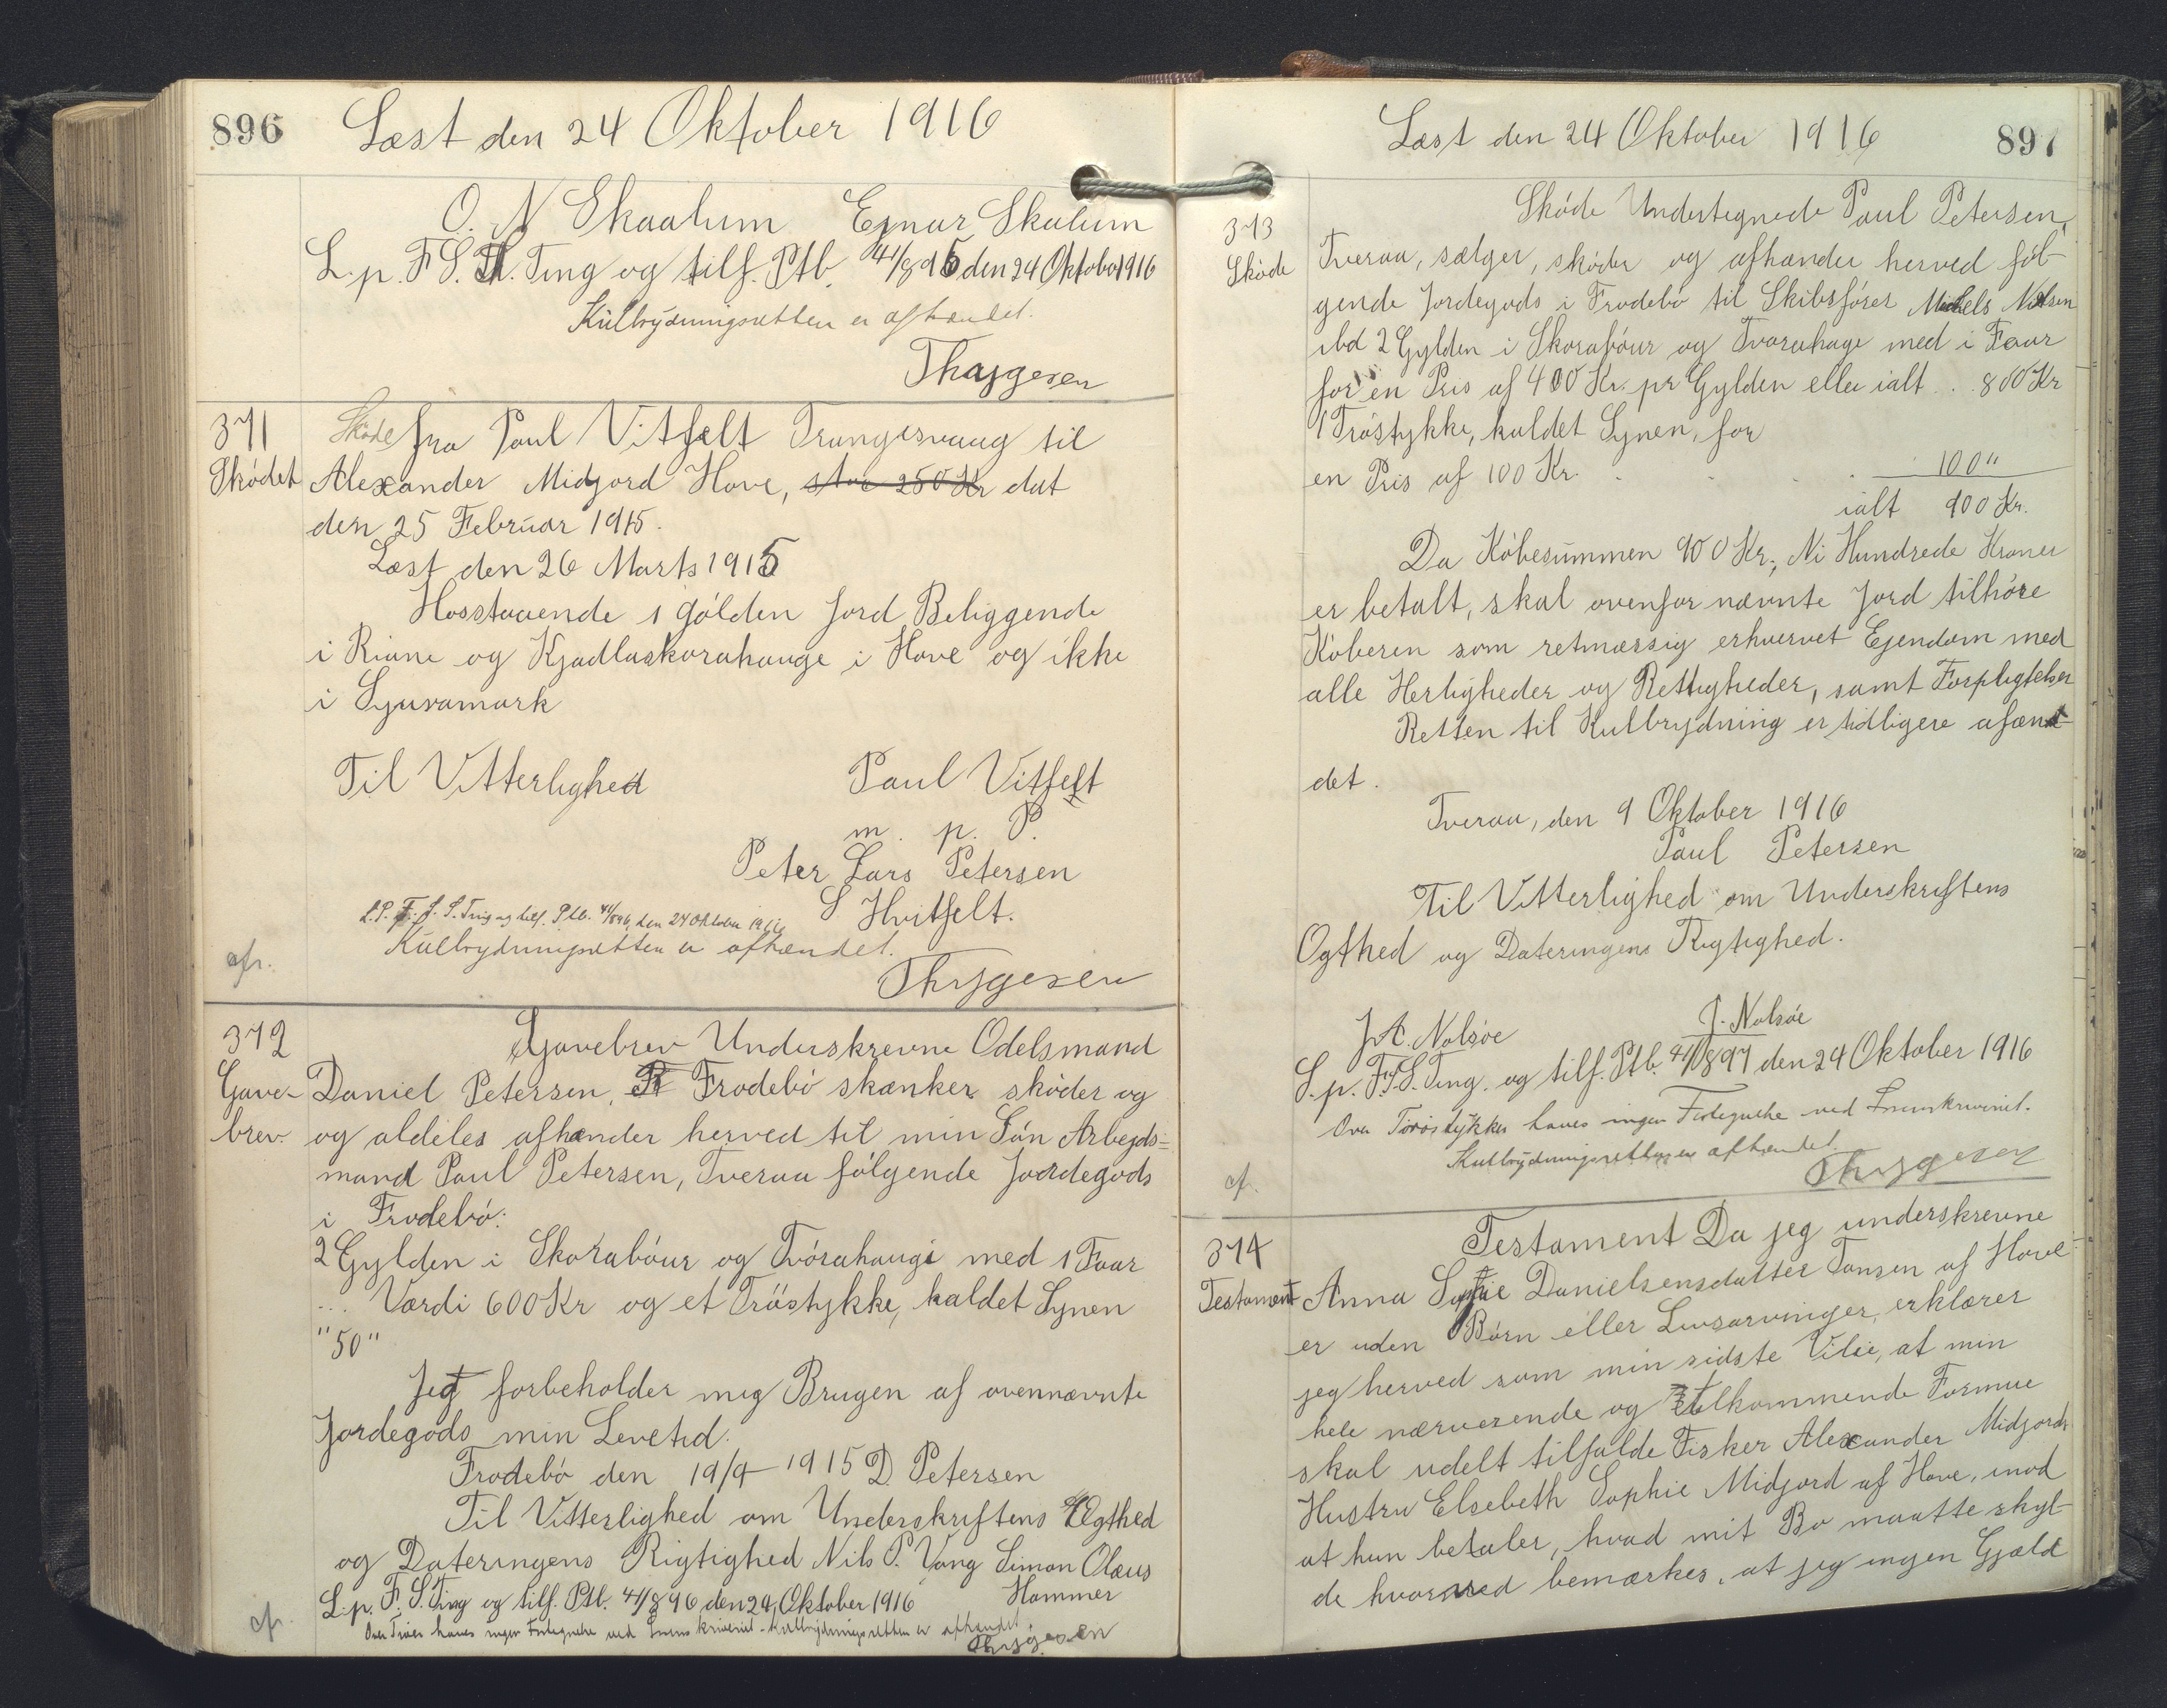 896
Læst den 24 Oktober 1916
O. N Skaalum Ejnar Skalum
L. p. F S. Ting og tilf. Ptb. 41/895 den 24 Oktober 1916
Kulbrydningsretten er afhændet.
Thygesen
371
Skødet
Skøde fra Poul Vitfelt Trangisvaag til
Alexander Midjord Hove, stor 250 Kr dat
den 25 Februar 1915.
Læst den 26 Marts 1915
Hosstaaende 1 gólden Jord Beliggende
i Riane og Kjadlaskorahauge i Hove og ikke
i Sjuramark
Til Vitterlighed Paul Vitfelt
m. p. P.
Peter Lars Petersen
S Hvitfelt.
L.P. F. S. Ting og tilf. Ptb. 41/896, den 24 Oktober 1916
Kulbrydningsretten er afhændet.
afr. Thygesen
372
Gave-
brev.
Gjavebrev Underskrevne Odelsmand
Daniel Petersen, Frodebö skænker skóder og
og aldeles afhænder herved til min Són Arbejds=
mand Poul Petersen, Tveraa fólgende Jordegods
i Frodebó:
2 Gylden i Skorabóur og Tvórahaugi med 1 Faar
... Værdi 600 Kr og et Tróstykke, kaldet Synen
"50"
Jeg forbeholder mig Brugen af ovennævnte
Jordegods min Levetid.
Frodebó den 19/9 1915 D. Petersen
Til Vitterlighed om Underskriftens Ægthed
og Dateringens Rigtighed Nils P. Vang Simon Olaus
Hammer
L. p. F. S. Ting og tilf. Ptb. 41/896, den 24 Oktober 1916
Over Tróen haves ingen Fortegnelse ved Sorenskriveriet - Kulbrydningsretten er afhændet
afr. Thygesen
Læst den 24 Oktober 1916
897
373
Skóde
Skóde Undertegnede Poul Petersen,
Tveraa, sælger, skóder og afhænder herved föl-
gende Jordegods i Frodebó til Skibsfórer Michels Nielsen
ibd 2 Gylden i Skorabóur og Tvorahage med i Faar
for en Pris af 400 Kr. pr Gylden eller ialt . . 800 Kr
1 Tróstykke, kaldet Synen, for
en Pris af 100 Kr. . . . . 100 "
ialt 900 Kr.
Da Kóbesummen 900 Kr., Ni Hundrede Kroner
er betalt, skal ovenfor nævnte Jord tilhóre
Kóberen som retmæssig erhvervet Ejendom med
alle Herligheder og Rettigheder, samt Forpligtelser
Retten til Kulbrydning er tidligere afænd-
det.
Tveraa, den 9 Oktober 1916
Paul Petersen
Til Vitterlighed om Underskriftens
Ogthed og Dateringens Rigtighed.
J A. Nolsóe J. Nolsóe
L. p. F. S. Ting. og tilf. Ptb. 41/897 den 24 Oktober 1916
Over Tróstykket haves ingen Fortegnelse ved Sorenskriveriet.
Kulbrydningsretten er afhændet.
afr. Thygesen
374
Testament
Testament Da jeg underskrevne
Anna Sofie Danielsensdatter Tansen af Hove
er uden Børn eller Livsarvinger, erklærer
jeg herved som min sidste Vilie, at min
hele nærværende og tilkommende Formue
skal udelt tilfalde Fisker Alexander Midjords
Hustru Elsebeth Sophie Midjord af Hove, imod
at hun betaler, hvad mit Bo maatte skyl-
de hvorved bemærkes, at jeg ingen Gjæld